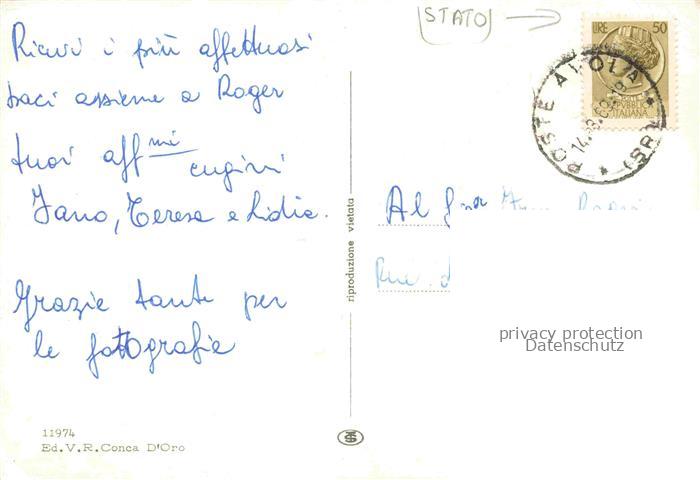 Ricevi i più affettuosi
baci assieme a Roger
tuoi aff mi cugini
Jano, Teresa e Lidia.
Grazie tante per
le fotografie
11974
Ed.V.R.Conca D'Oro
riproduzione vietata
STATO
LIRE 50
REPUBBLICA
ITALIANA
POSTE (SR)
Al
privacy protection
Datenschutz